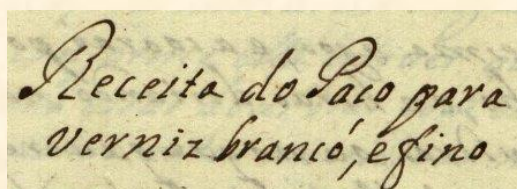 Receita do Paço para
verniz branco, e fino